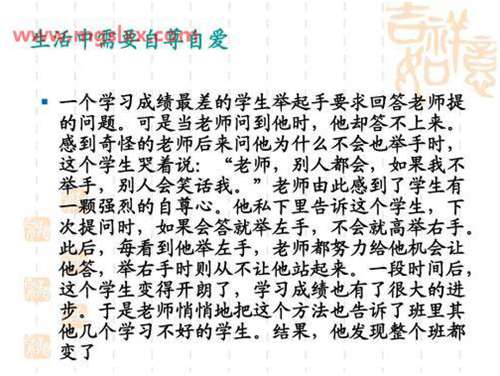 生活中需要自尊自爱
一个学习成绩最差的学生举起手要求回答老师提
的问题。可是当老师问到他时，他却答不上来。
感到奇怪的老师后来问他为什么不会也举手时，
这个学生哭着说：“老师，别人都会，如果我不
举手，别人会笑话我。”老师由此感到了学生有
一颗强烈的自尊心。他私下里告诉这个学生，下
次提问时，如果会答就举左手，不会就高举右手。
此后，每看到他举左手，老师都努力给他机会让
他答，举右手时则从不让他站起来。一段时间后，
这个学生变得开朗了，学习成绩也有了很大的进
步。于是老师悄悄地把这个方法也告诉了班里其
他几个学习不好的学生。结果，他发现整个班都
变了
吉祥如意